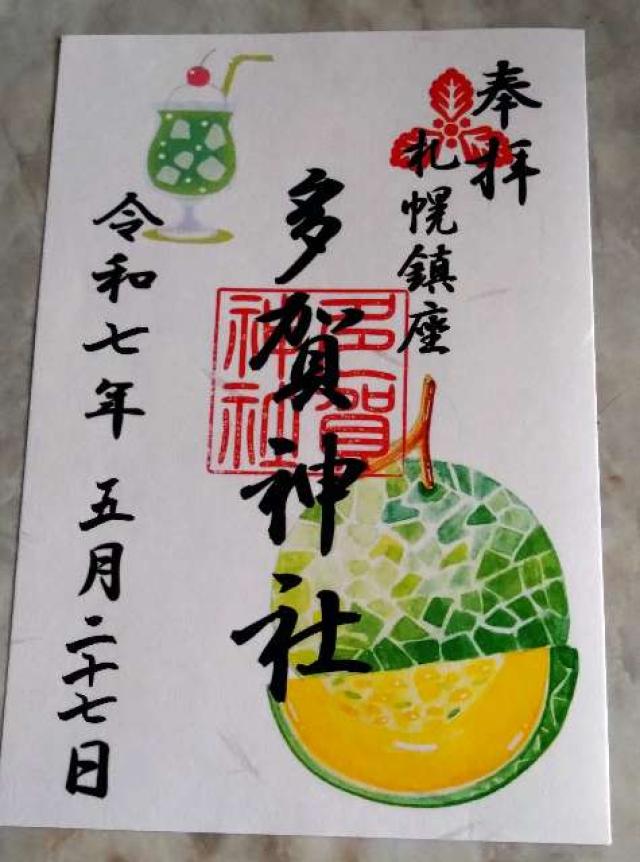 奉拝
札幌鎮座
多賀神社
多賀
神社
令和七年 五月二十七日